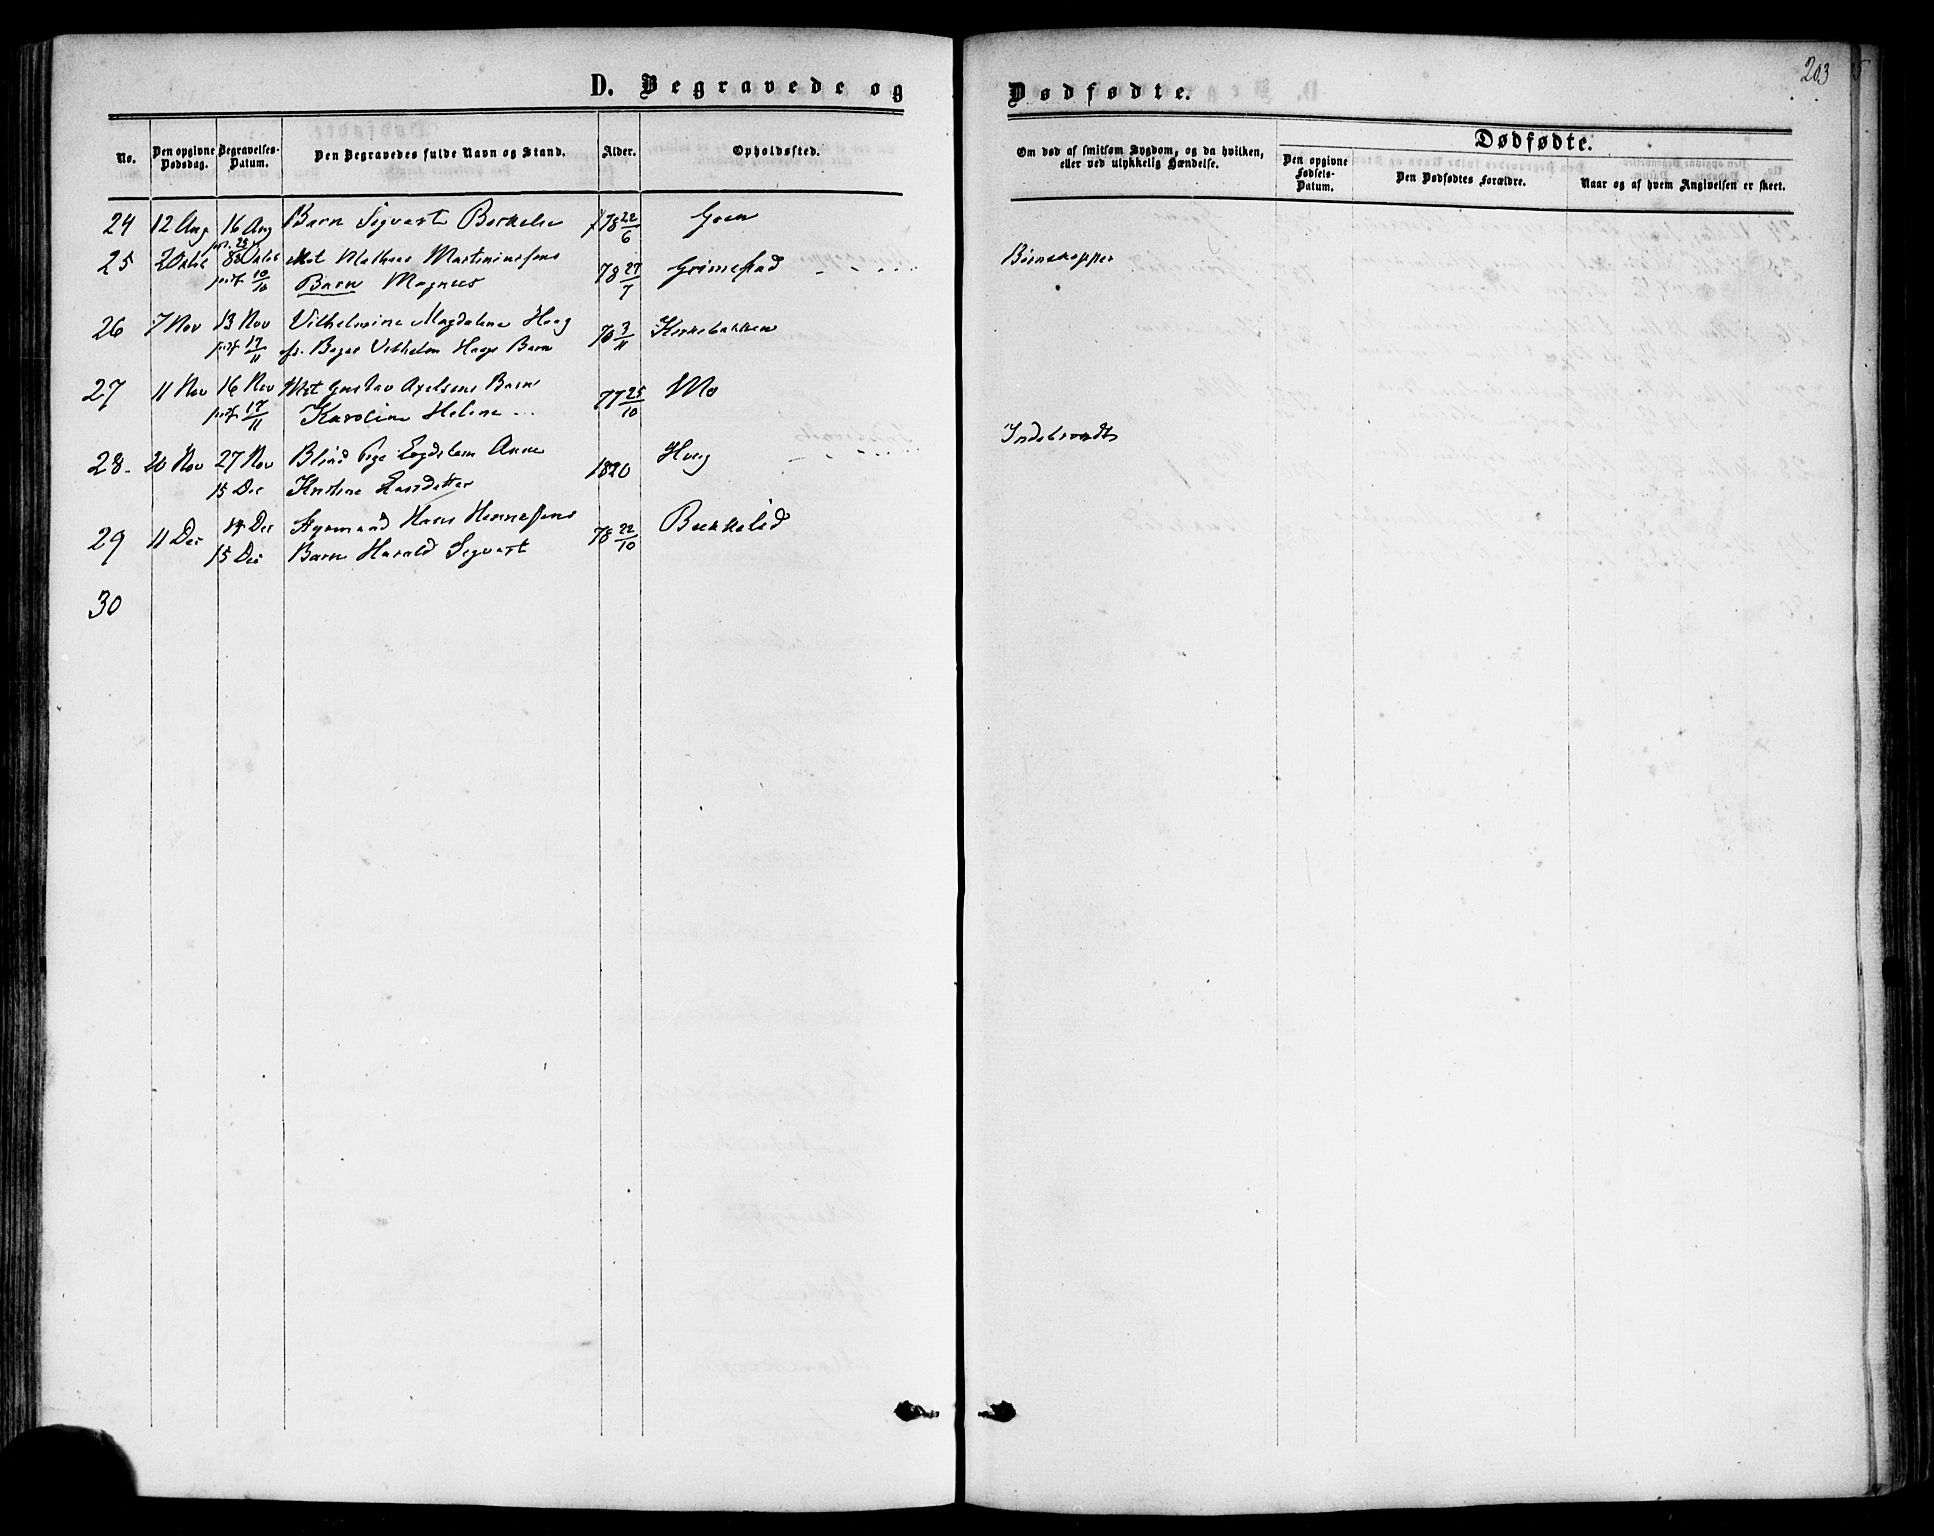 D. Begravede og
No.
Den opgivne Dødsdag.
Begravelses-Datum.
Den Begravedes fulde Navn og Stand.
Alder.
Opholdssted.
24 12 Aug 16 Aug Barn Sigvart Berthelse 78 22/6 Goen
25 2 Oktbr 8 Oktbr Mst Mathias Martiniussens 78 27/7 Grimestad
10/10 Barn Magnus
26 7 Nov 13 Nov Vilhelmine Magdalene Haag 70 3/11 Kirkebakken
17/11 Vilhelm Haags Barn
27 11 Nov 16 Nov Mst Gustav Axelsens Barn 77 25/10 Mo
17/11 Karoline Helene
28 20 Nov 27 Nov Blind Pige Anne 1820
15 Dec Kristine Larsdatter
29 11 Dec 14 Dec Styrmand Hans 78 22/10 Bekkelid
15 Dec Barn Harald Sigvart
30
Dødfødte.
203
Om død af smitsom Sygdom, og da hvilken,
eller ved ulykkelig Hændelse.
Dødfødte.
Den opgivne Fødsels-Datum.
Den Dødfødtes Forældre.
Naar og af hvem Angivelsen er skeet.
Børnekopper
Indebrændt